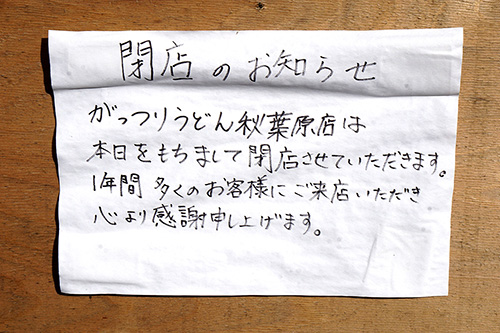 閉店のお知らせ
がっつりうどん秋葉原店は
本日をもちまして閉店させていただきます。
1年間多くのお客様にご来店いただき
心より感謝申し上げます。